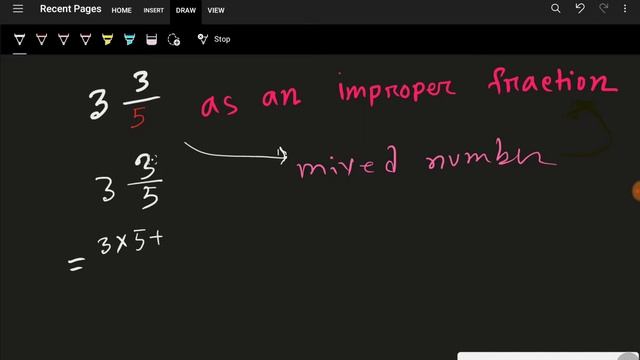 Recent Pages HOME INSERT DRAW VIEW
Stop
3 3/5 as an improper fraction
mixed number
3 3/5
= 3 × 5 +